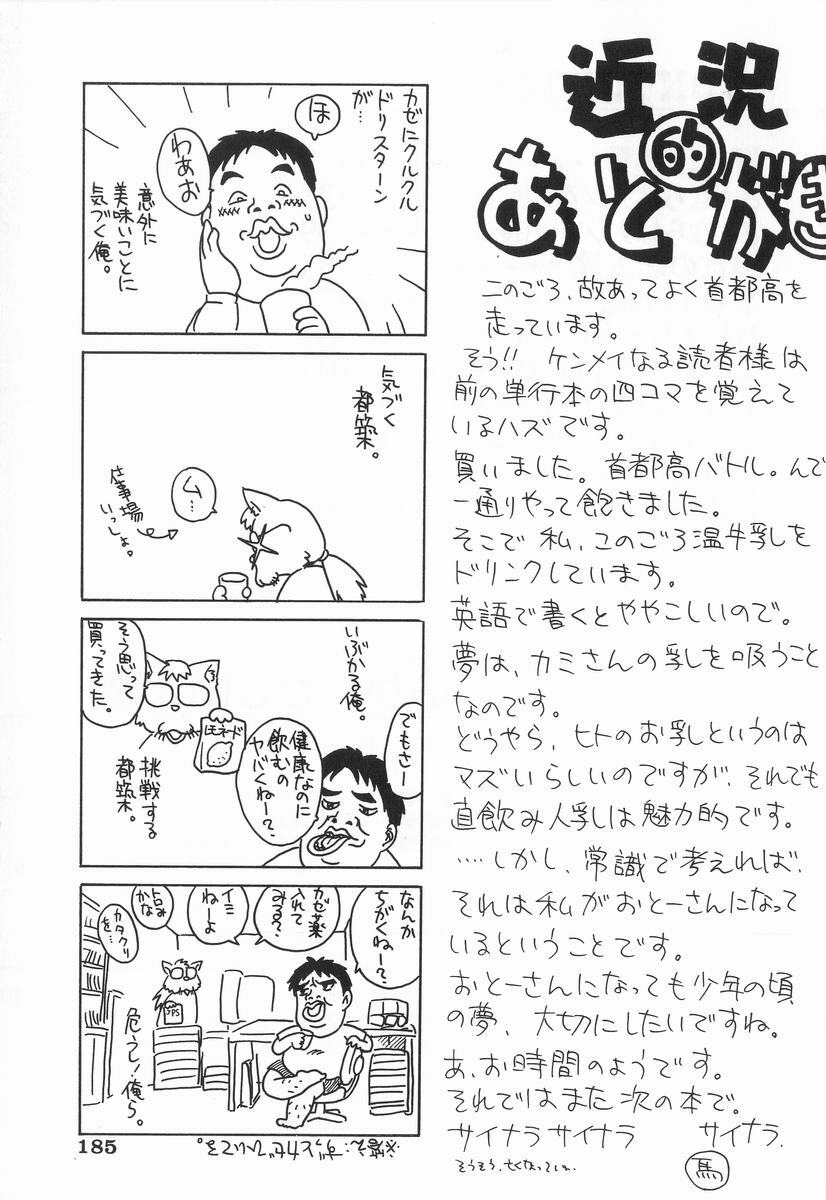 近況
的
あとがき
このごろ、故あってよく首都高を
走っています。
そう!! ケンメイなる読者様は
前の単行本の四コマを覚えて
いるハズです。
買いました。首都高バトル。んで
一通りやって飽きました。
そこで私、このごろ温牛乳を
ドリンクしています。
英語で書くとややこしいので。
夢は、カミさんの乳を吸うこと
なのです。
どうやら、ヒトのお乳というのは
マズいらしいのですが、それでも
直飲み人乳は魅力的です。
‥‥しかし、常識で考えれば、
それは私がおとーさんになって
いるということです。
おとーさんになっても少年の頃
の夢、大切にしたいですね。
あ、お時間のようです。
それではまた次の本で。
サイナラ サイナラ サイナラ.
馬
カゼにクルクル
ドリスターン
が…
ほ
わぁお
意外に
美味いことに
気づく俺。
気づく
都築。
ム…
仕事場
いっしょ。
いぶかる俺。
でもさー
健康なのに
飲むの
ヤバくねー?
そう思って
買ってきた。
レモネード
挑戦する
都築。
なんか
ちがくねー?
カゼ薬
入れて
みる?
イミ
ねーよ
カタクリ
を…
危うし!俺ら。
185